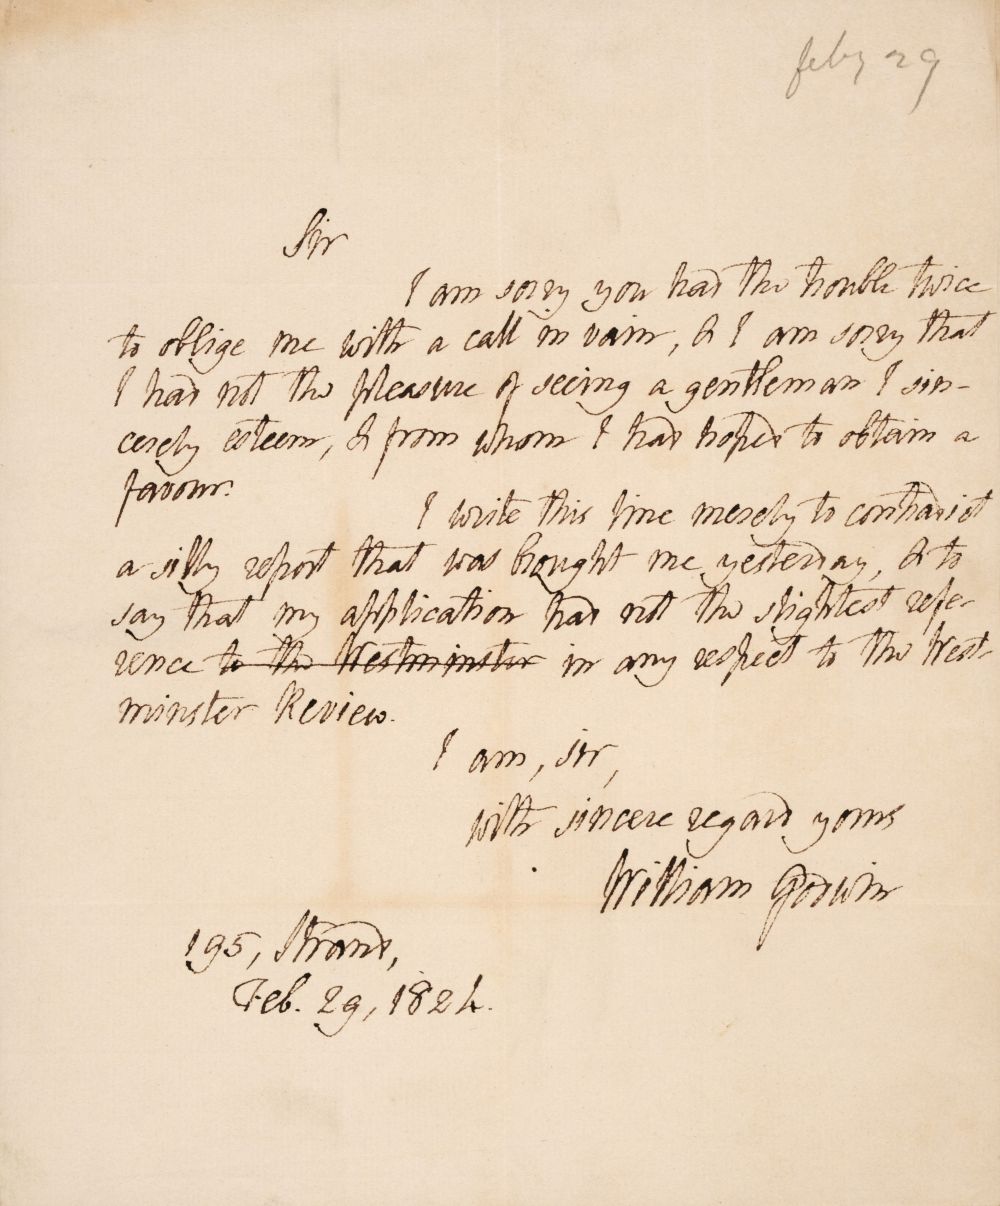 feby 29
Sir
I am sorry you had the trouble twice
to oblige me with a call in vain, & I am sorry that
I had not the pleasure of seeing a gentleman I sin-
cerely esteem, & from whom I had hoped to obtain a
favour.
I write this line merely to contradict
a silly report that was brought me yesterday, & to
say that my application had not the slightest refe-
rence to the Westminster in any respect to the West-
minster Review.
I am, sir,
with sincere regard yours
William Godwin
195, Strand,
Feb. 29, 1824.